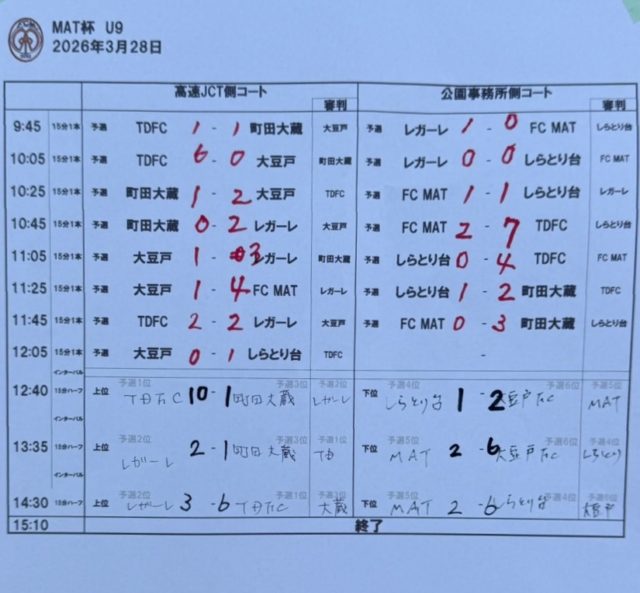 MAT杯 U9
2026年3月28日
高速JCT側コート 審判 公園事務所側コート 審判
9:45 15分1本 予選 TDFC 1 - 1 町田大蔵 大豆戸 予選 レガーレ 1 - 0 FC MAT しらとり台
10:05 15分1本 予選 TDFC 6 - 0 大豆戸 町田大蔵 予選 レガーレ 0 - 0 しらとり台 FC MAT
10:25 15分1本 予選 町田大蔵 1 - 2 大豆戸 TDFC 予選 FC MAT 1 - 1 しらとり台 レガーレ
10:45 15分1本 予選 町田大蔵 0 - 2 レガーレ 大豆戸 予選 FC MAT 2 - 7 TDFC しらとり台
11:05 15分1本 予選 大豆戸 1 - 3 レガーレ 町田大蔵 予選 しらとり台 0 - 4 TDFC FC MAT
11:25 15分1本 予選 大豆戸 1 - 4 FC MAT レガーレ 予選 しらとり台 1 - 2 町田大蔵 TDFC
11:45 15分1本 予選 TDFC 2 - 2 レガーレ 大豆戸 予選 FC MAT 0 - 3 町田大蔵 しらとり台
12:05 15分1本 予選 大豆戸 0 - 1 しらとり台 TDFC -
インターバル
予選1位 予選3位 予選2位 予選4位 予選6位 予選5位
12:40 15分ハーフ 上位 TDFC 10 - 1 町田大蔵 レガーレ 下位 しらとり台 1 - 2 大豆戸FC MAT
インターバル
予選2位 予選3位 予選1位 予選5位 予選6位 予選4位
13:35 15分ハーフ 上位 レガーレ 2 - 1 町田大蔵 TD 下位 MAT 2 - 6 大豆戸FC しらとり
インターバル
予選2位 予選1位 予選3位 予選5位 予選4位 予選6位
14:30 15分ハーフ 上位 レガーレ 3 - 6 TDFC 大蔵 下位 MAT 2 - 6 しらとり台
15:10 終了